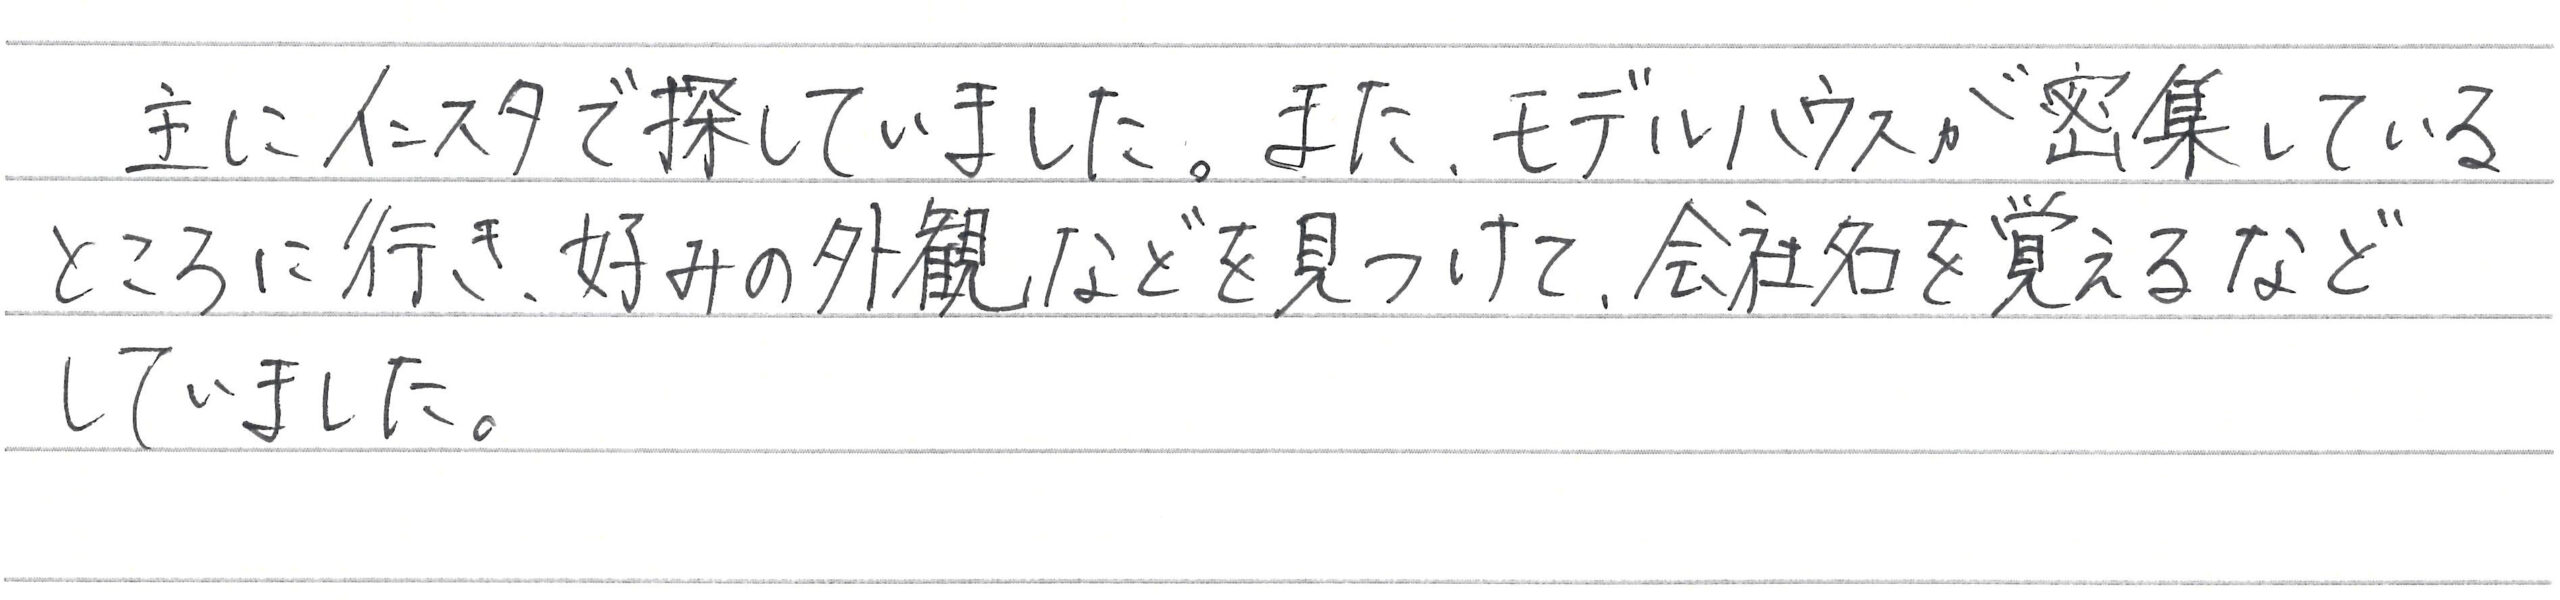 主にインスタで探していました。また、モデルハウスが密集している
ところに行き、好みの外観などを見つけて、会社名を覚えるなど
していました。